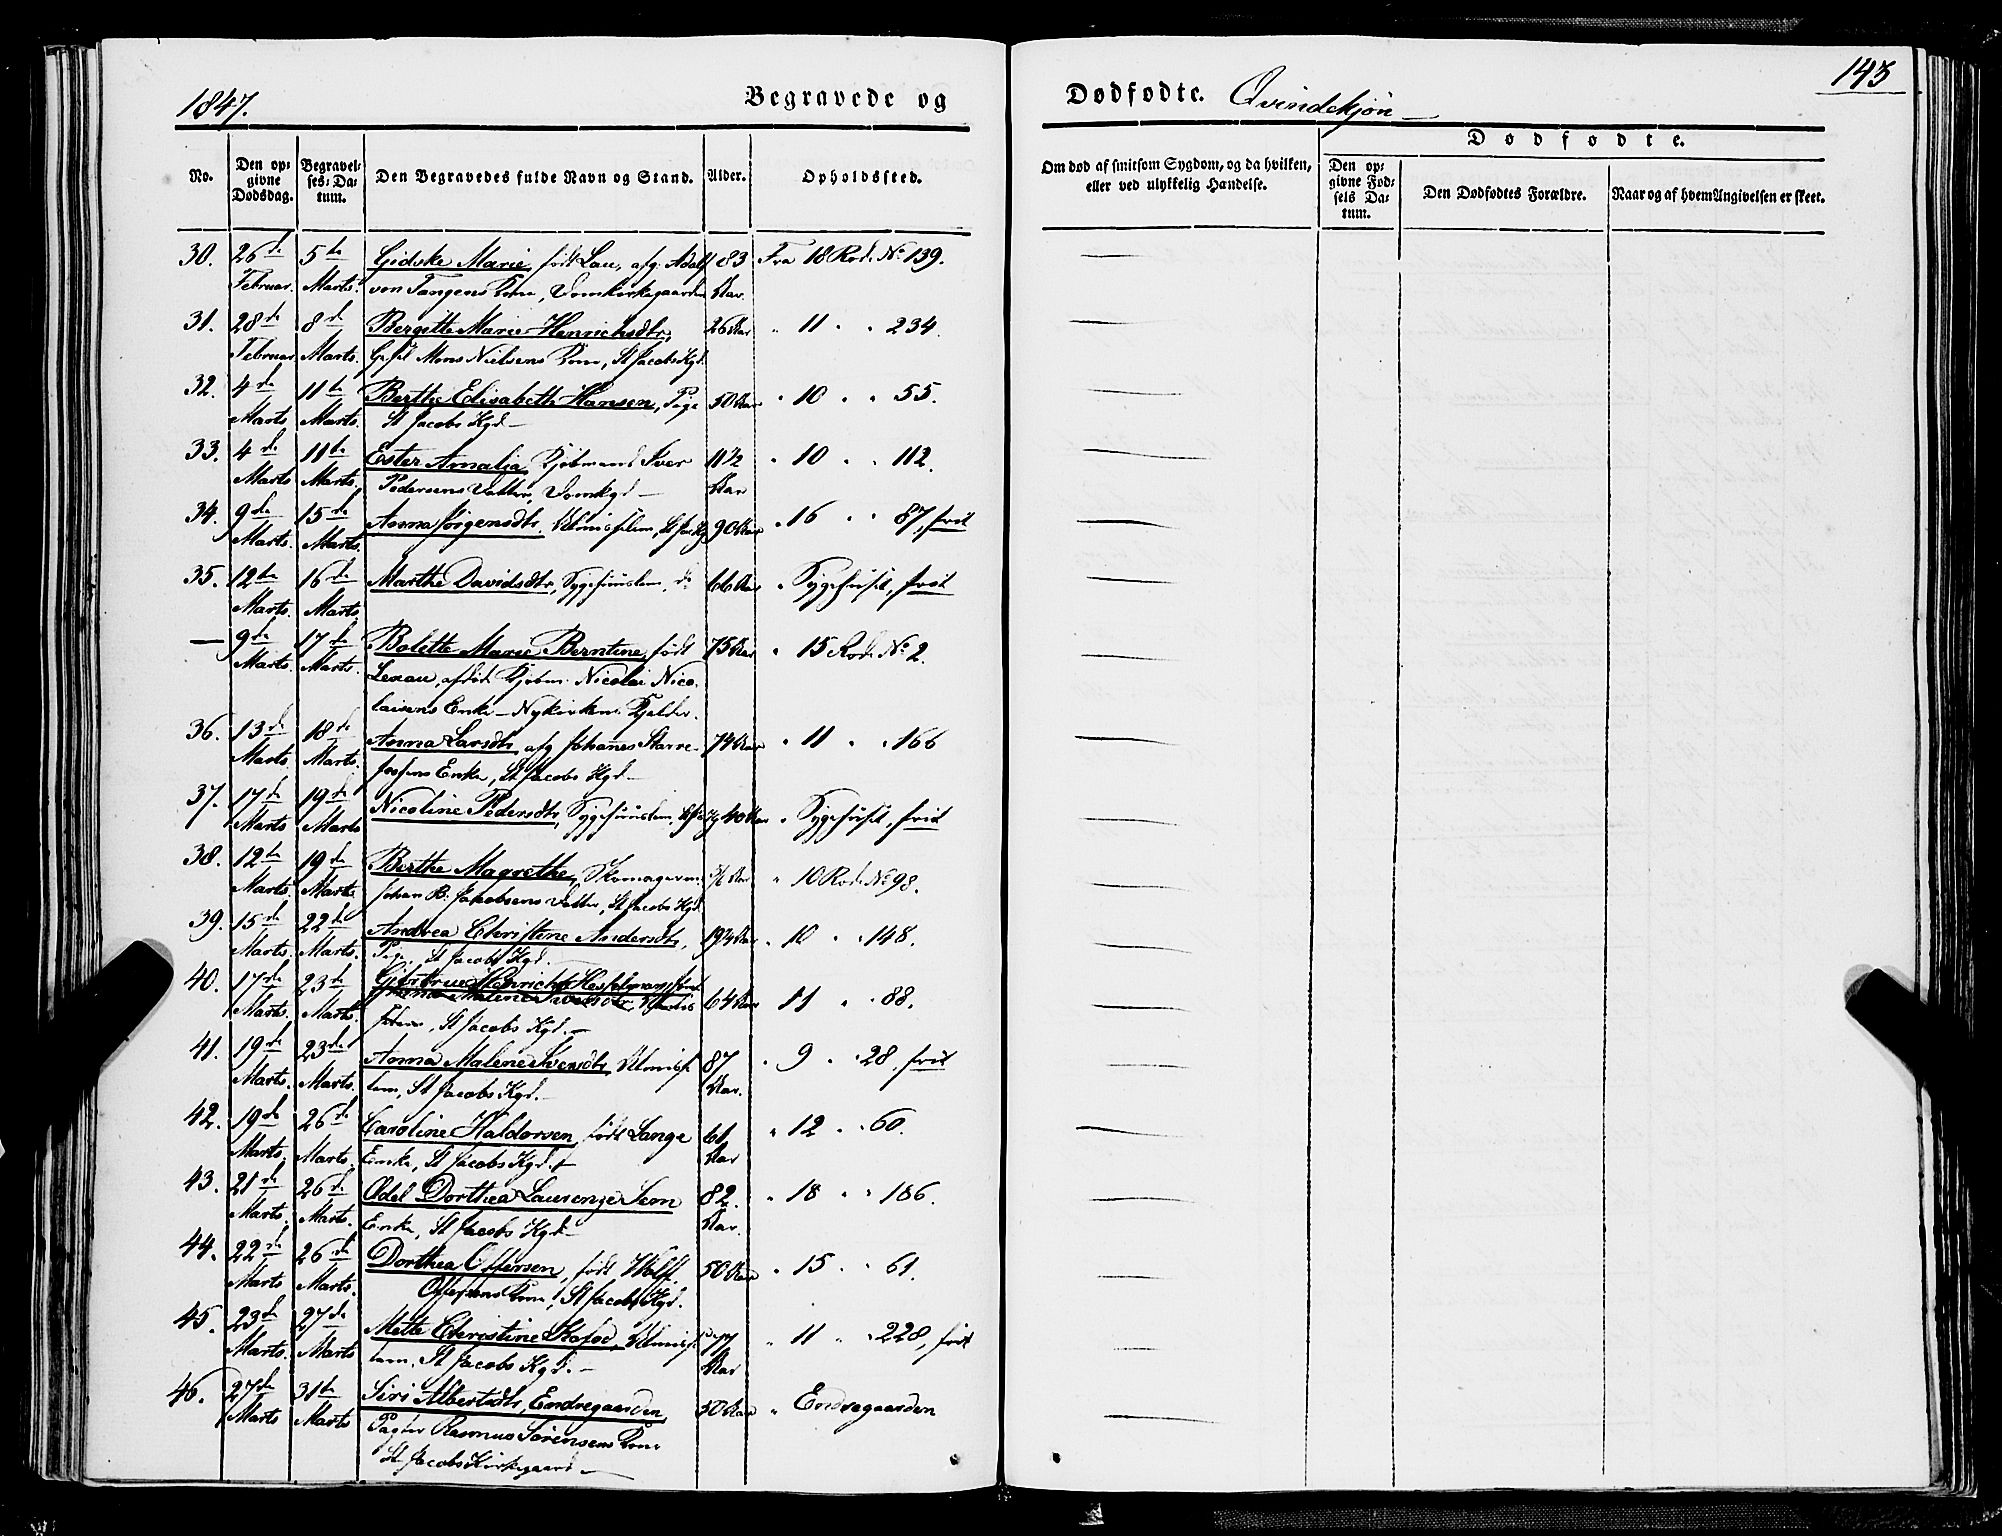 1847.
Begravede og
Dødfødte. Qvindekjøn
143
No.
Den op-
givne
Dødsdag.
Begravel-
ses-Da-
tum.
Den Begravedes fulde Navn og Stand.
Alder.
Opholdssted.
Om død af smitsom Sygdom, og da hvilken,
eller ved ulykkelig Hændelse.
Dødfødte.
Den op-
givne Fød-
sels Da-
tum.
Den Dødfødtes Forældre.
Naar og af hvem Angivelsen er skeet.
30. 26de 5te Gidske Marie, født Lau, afg. Adolf 83 Fra 18 Rode No 139.
Februar. Marts. von Tangens Kone, Domkirkegaarden Aar.
31. 28de 8de Bergitte Marie Henrichsdtr, 26 Aar " 11 " " 234.
Februar. Marts. Mons Nielsens Kone, St Jacobs Kgd.
32. 4de 11te Berthe Elisabeth Hansen, Pige 50 Aar " 10 " " 55.
Marts. Marts. St Jacobs Kgd.
33. 4de 11te Ester Amalia, Kjøbmand Iver 11½ " 10 " " 112.
Marts Marts. Pedersens Datter, Domkgd Aar
34. 9de 15de Anna Jørgensdtr. Almisselem, 90 Aar " 16 " " 87, frit
Marts. Marts.
35. 12te 16de Marthe Davidsdtr, Sygehuuslem, do 66 Aar " Sygehuset, frit
Marts. Marts.
— 9de 17de Bolette Marie Berntine, født 75 Aar " 15 Rode No 2.
Marts. Marts. afdøde Kjøbm. Nicolai Nico-
laisens Enke – Nykirkens Kjelder.
36. 13de 18de Anna Larsdtr, afg Johanes Starre- 74 Aar " 11 " " 166
Marts. Marts. Enke, St Jacobs Kgd
37. 17de 19de Nicoline Pedersdtr, Sygehuuslem, 40 Aar " Sygehuset, frit
Marts Marts
38. 12te 19de Berthe Magrethe, Skomagerm. Aar " 10 Rode No 98.
Marts. Marts Johan B. Jakobsens Datter, St Jacobs Kgd
39. 15de 22de Andrea Christine Andersdtr, 19¼ Aar " 10 " " 148.
Marts. Marts. Pige, St Jacobs Kgd.
40. 17de 23de
Marts. Marts. 64 Aar " 11 " " 88.
St Jacobs Kgd.
41. 19de 23de Anna Malene Iversdtr, Almisse- 87 " 9 " " 28, frit
Marts. Marts. lem, St Jacobs Kgd. Aar.
42. 19de 26de Caroline Haldorsen, født Lange 61 " 12 " " 60.
Marts. Marts. Enke, St Jacobs Kgd. Aar
43. 21de 26de Odel Dorthea Laurenze Sem 82. " 18 " " 186.
Marts. Marts. Enke, St Jacobs Kgd Aar.
44. 22de 26de Dorthea Offersen, født Wolff 50 Aar " 15 " " 61.
Marts Marts. Offersens Kone, St Jacobs Kgd.
45. 23de 27de Mette Christine Almisse- 77 " 11 " " 228, frit
Marts. Marts lem. St Jacobs Kgd. Aar
46. 27de 31te Siri Albertsdtr, Endregaarden, 50 Aar " Endregaarden
Marts Marts Pagter Rasmus Sørensens Kone
St Jacobs Kirkegaard